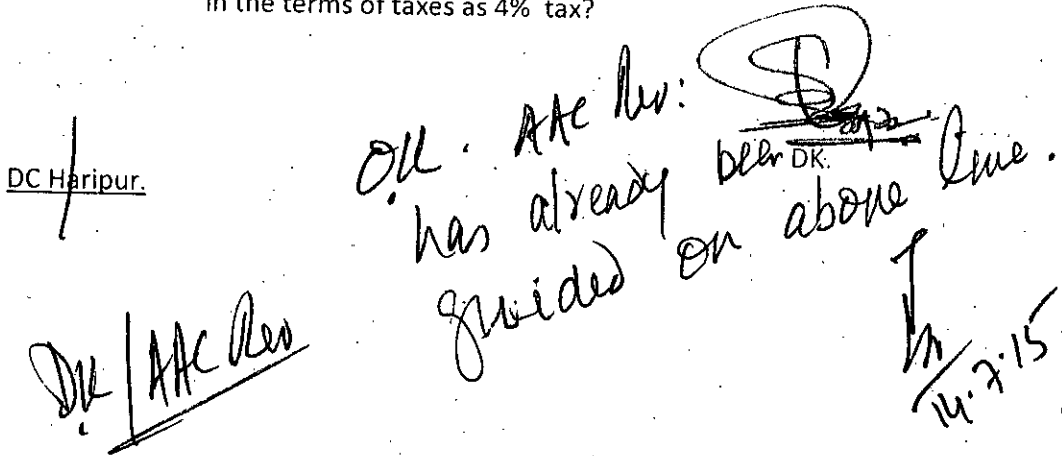 in the terms of taxes as 4% tax?
DC Haripur.
DK.
OK. AAC Rev:
has already been
guided on above line.
14.7.15
DK/AAC Rev